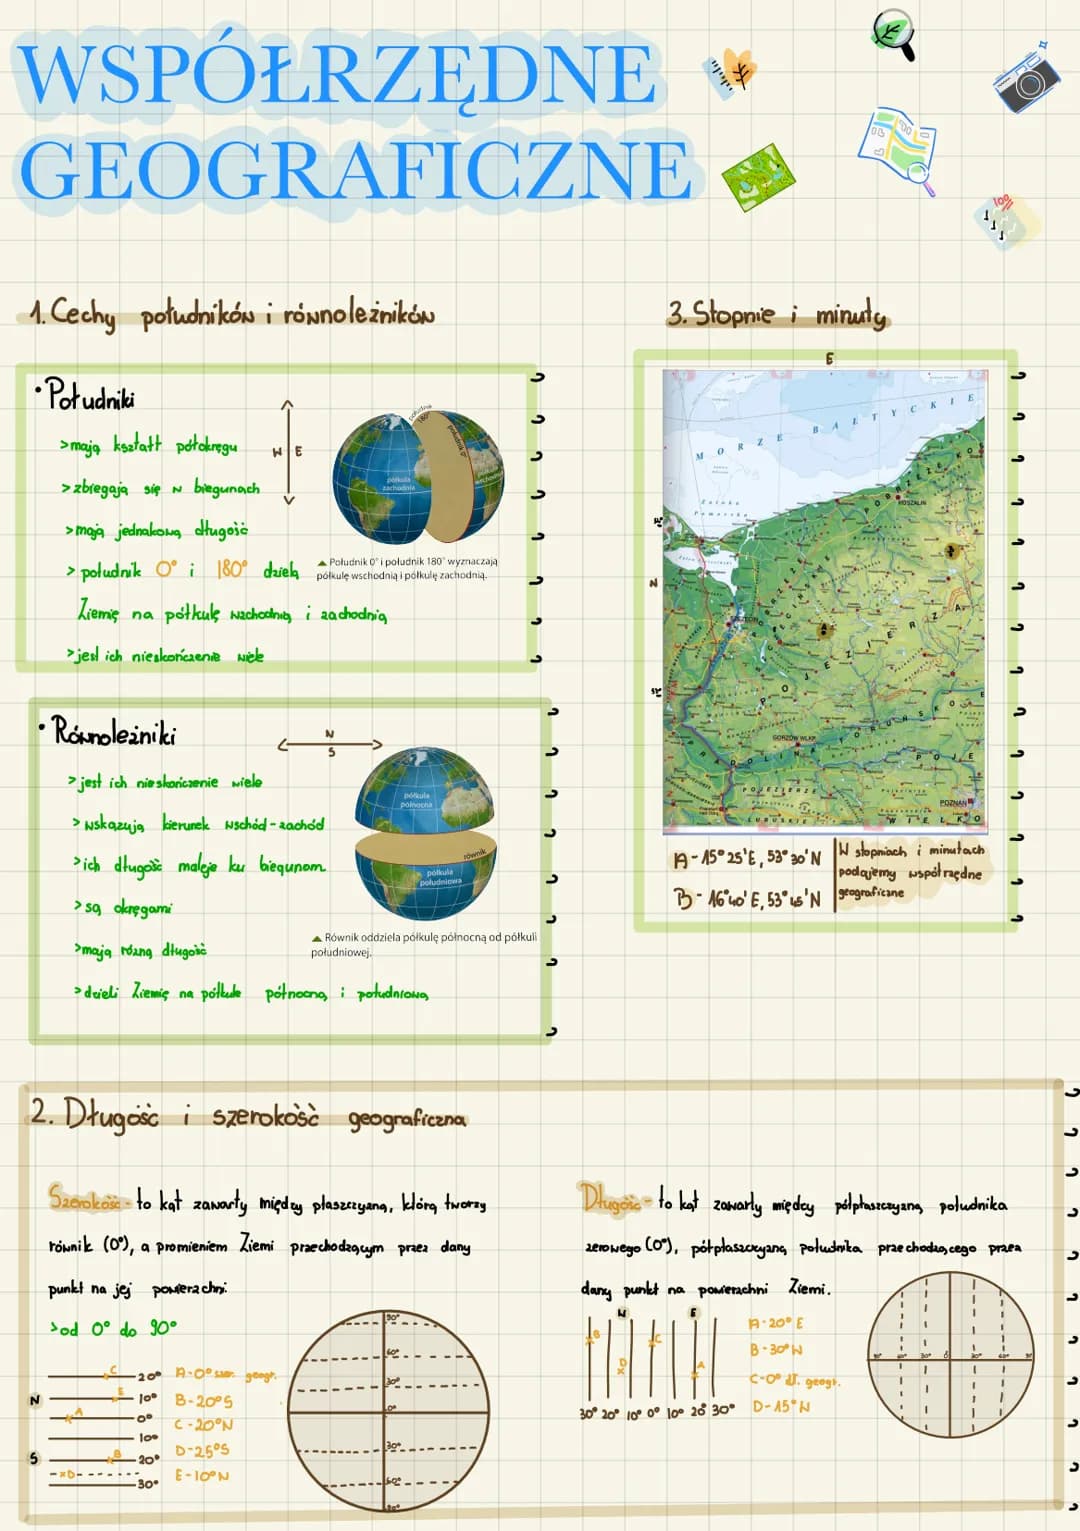 WSPÓŁRZĘDNE
GEOGRAFICZNE
1. Cechy południków i równoleżników
• Południki
> mają kształt półokręgu
> zbiegają się w biegunach
> mają jednakową długość
> południk 0° i 180° dzielą
Ziemię na półkulę wschodnią i zachodnią
> jest ich nieskończenie wiele
W E
południk
180°
południk 0°
półkula
zachodnia
wschodnia
Południk 0° i południk 180° wyznaczają
półkulę wschodnią i półkulę zachodnią.
• Równoleżniki
> jest ich nieskończenie wiele
> wskazują kierunek wschód - zachód
> ich długość maleje ku biegunom
> są okręgami
> mają różną długość
> dzieli Ziemię na półkule północną i południową
N
S
półkula
północna
równik
półkula
południowa
Równik oddziela półkulę północną od półkuli
południowej.
3. Stopnie i minuty
E
N
MORZE BAŁTYCKIE
Zatoka
Pomorska
KOSZALIN
SZCZECIN
GORZÓW WLKP.
POZNAŃ
POJEZIERZE
LUBUSKIE
WIELKO
A
B
A - 15° 25'E, 53° 30'N
B - 16°40' E, 53° 45'N
W stopniach i minutach
podajemy współrzędne
geograficzne
2. Długość i szerokość geograficzna
Szerokość - to kąt zawarty między płaszczyzną, którą tworzy
równik (0°), a promieniem Ziemi przechodzącym przez dany
punkt na jej powierzchni.
> od 0° do 90°
C 20°
N E 10°
A 0°
10°
S B 20°
D
30°
A - 0° szer. geogr.
B - 20°S
C - 20°N
D - 25°S
E - 10°N
90°
60°
30°
0°
30°
60°
90°
Długość - to kąt zawarty między półpłaszczyzną południka
zerowego (0°), półpłaszczyzną południka przechodzącego przez
dany punkt na powierzchni Ziemi.
W E
B D C A
30° 20° 10° 0° 10° 20° 30°
A - 20° E
B - 30° W
C - 0° dł. geogr.
D - 15° W
90° 60° 30° 0° 30° 60° 90°